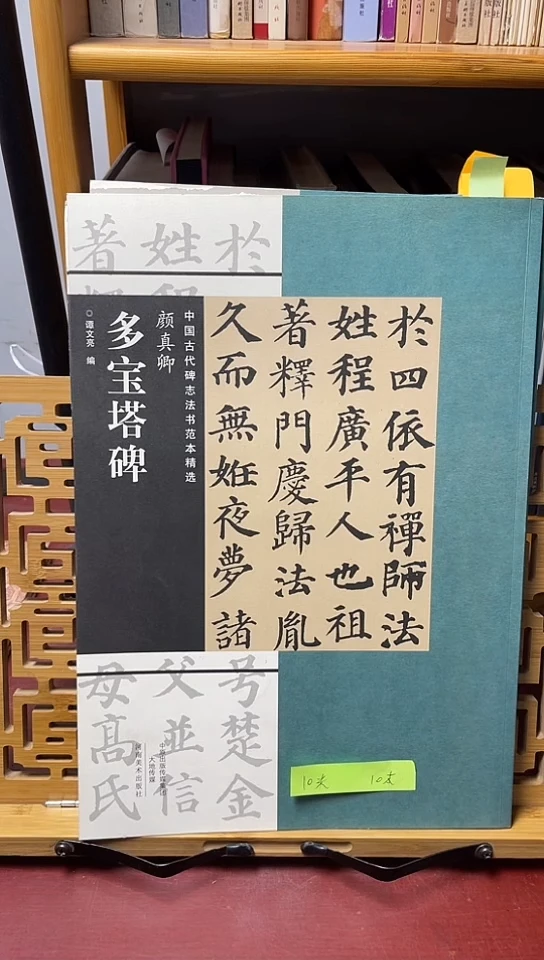 著姓於
於四依有禪師法
姓程廣平人也祖
著釋門慶歸法胤
久而無姙夜夢諸
中国古代碑志法书范本精选
颜真卿
多宝塔碑
○谭文亮 编
号楚金
父並信
母髙氏
中原出版传媒集团
大地传媒
河南美术出版社
10元 10本